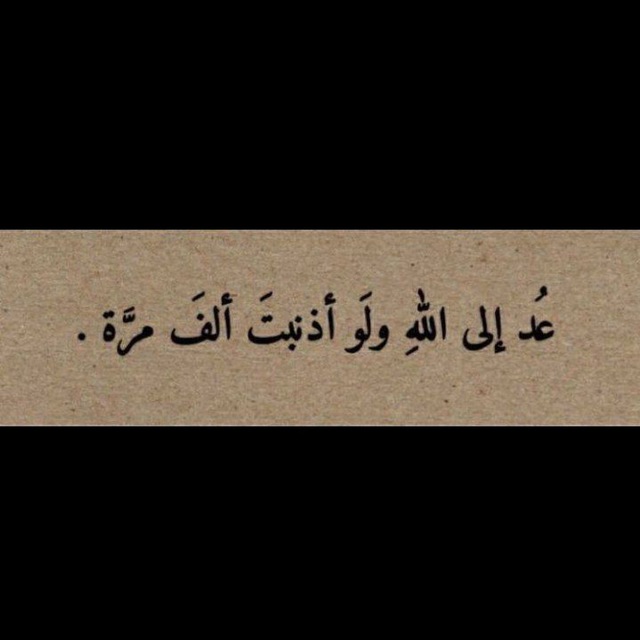 عُد إلى اللهِ ولَو أذنبتَ ألفَ مرَّة .